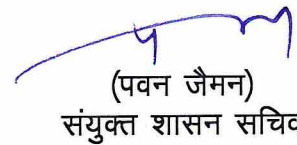 (पवन जैमन)
संयुक्त शासन सचिव